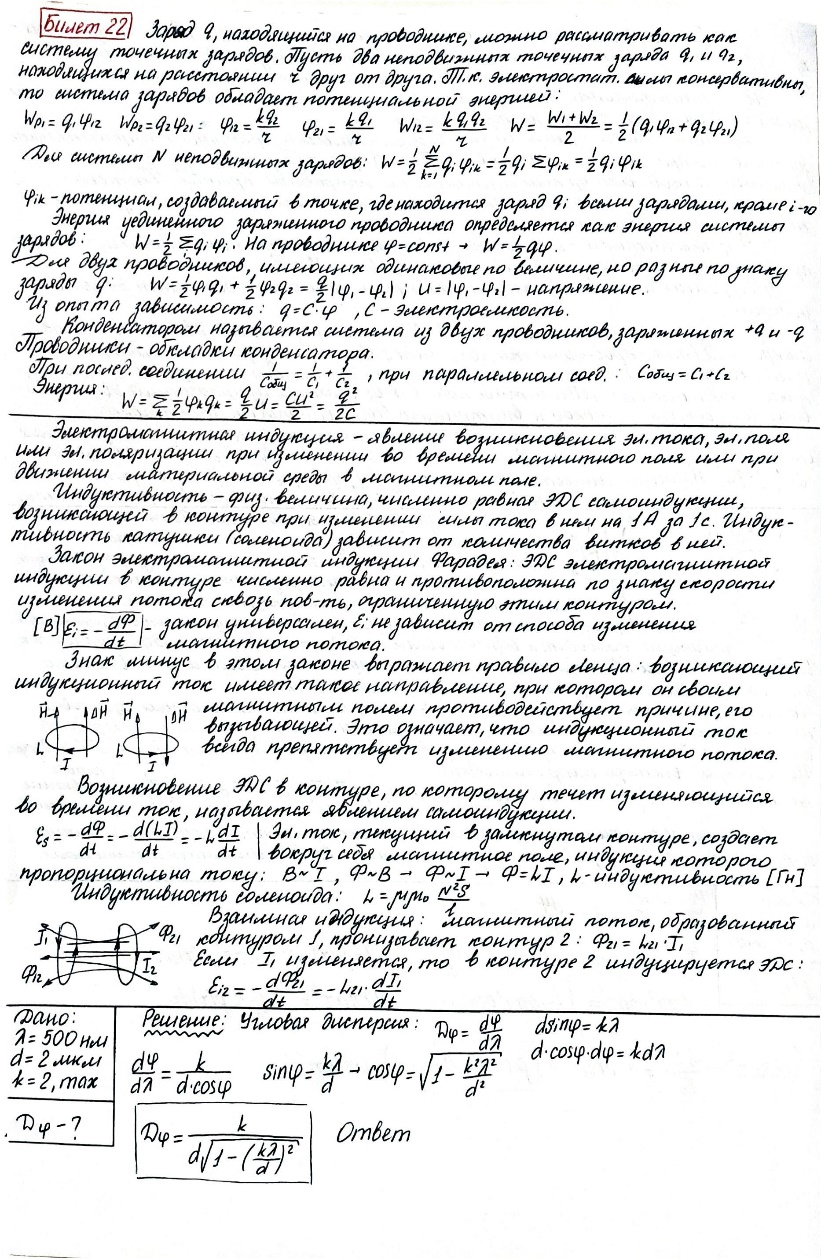 Билет 22 Заряд q, находящийся на проводнике, можно рассматривать как
систему точечных зарядов. Пусть два неподвижных точечных заряда q₁ и q₂,
находящихся на расстоянии r друг от друга. Т.к. электростат. силы консервативны,
то система зарядов обладает потенциальной энергией:
Wp₁ = q₁φ₁₂ Wp₂ = q₂φ₂₁ : φ₁₂ = kq₂/r φ₂₁ = kq₁/r W₁₂ = kq₁q₂/r W = (W₁+W₂)/2 = 1/2(q₁φ₁₂+q₂φ₂₁)
Для системы N неподвижных зарядов: W = 1/2 Σ(k=1, N) qᵢφᵢₖ = 1/2 qᵢ Σφᵢₖ = 1/2 qᵢφᵢₖ
φᵢₖ - потенциал, создаваемый в точке, где находится заряд qᵢ всеми зарядами, кроме i-го
Энергия уединённого заряженного проводника определяется как энергия системы
зарядов: W = 1/2 Σqᵢφᵢ. На проводнике φ=const → W = 1/2 qφ.
Для двух проводников, имеющих одинаковые по величине, но разные по знаку
заряды q: W = 1/2φ₁q₁ + 1/2φ₂q₂ = q/2|φ₁-φ₂| ; U = |φ₁-φ₂| - напряжение.
Из опыта зависимость: q=C·φ , C - электроёмкость.
Конденсатором называется система из двух проводников, заряженных +q и -q
Проводники - обкладки конденсатора.
При послед. соединении 1/Cобщ = 1/C₁ + 1/C₂ , при параллельном соед.: Cобщ = C₁+C₂
Энергия: W = Σₖ 1/2 φₖqₖ = q/2 U = CU²/2 = q²/2C
Электромагнитная индукция - явление возникновения эл.тока, эл.поля
или эл.поляризации при изменении во времени магнитного поля или при
движении материальной среды в магнитном поле.
Индуктивность - физ. величина, численно равная ЭДС самоиндукции,
возникающей в контуре при изменении силы тока в нем на 1А за 1с. Индук-
тивность катушки (соленоида) зависит от количества витков в ней.
Закон электромагнитной индукции Фарадея: ЭДС электромагнитной
индукции в контуре численно равна и противоположна по знаку скорости
изменения потока сквозь пов-ть, ограниченную этим контуром.
[В] Ɛᵢ = -dФ/dt - закон универсален, Ɛᵢ не зависит от способа изменения
магнитного потока.
Знак минус в этом законе выражает правило Ленца: возникающий
индукционный ток имеет такое направление, при котором он своим
H ΔH H ΔH магнитным полем противодействует причине, его
вызывающей. Это означает, что индукционный ток
L I L I всегда препятствует изменению магнитного потока.
Возникновение ЭДС в контуре, по которому течет изменяющийся
во времени ток, называется явлением самоиндукции.
Ɛs = -dФ/dt = -d(LI)/dt = -L dI/dt | Эл. ток, текущий в замкнутом контуре, создает
вокруг себя магнитное поле, индукция которого
пропорциональна току: B~I , Ф~B → Ф~I → Ф=LI , L-индуктивность [Гн]
Индуктивность соленоида: L = μμ₀ N²S/l
Взаимная индукция: магнитный поток, образованный
I₁ Ф₂₁ контуром 1, пронизывает контур 2: Ф₂₁ = L₂₁·I₁
Ф₁₂ I₂ Если I₁ изменяется, то в контуре 2 индуцируется ЭДС:
Ɛᵢ₂ = -dФ₂₁/dt = -L₂₁·dI₁/dt
Дано:
λ = 500 нм
d = 2 мкм
k = 2, max
Dφ - ?
Решение: Угловая дисперсия: Dφ = dφ/dλ dsinφ = kλ
d·cosφ·dφ = kdλ
dφ/dλ = k/(d·cosφ) sinφ = kλ/d → cosφ = √(1 - k²λ²/d²)
Dφ = k/(d√(1-(kλ/d)²)) Ответ